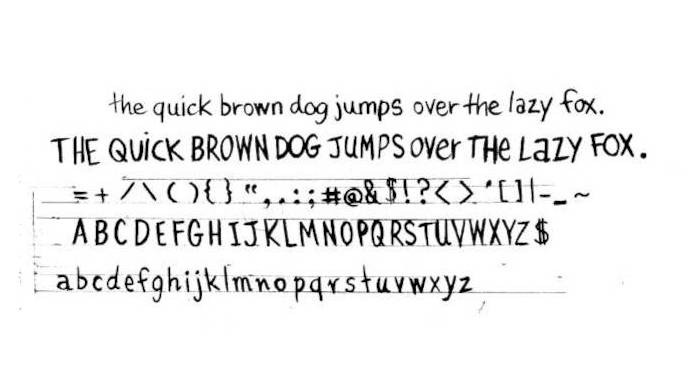 the quick brown dog jumps over the lazy fox.
THE QUiCK BROWN DOG JUMPS Over THe LaZY FOX.
= + / \ ( ) { } “ , . : ; # @ & $ ! ? < > ' [ ] | - _ ~
A B C D E F G H I J K L M N O P Q R S T U V W X Y Z $
a b c d e f g h i j k l m n o p q r s t u v w x y z